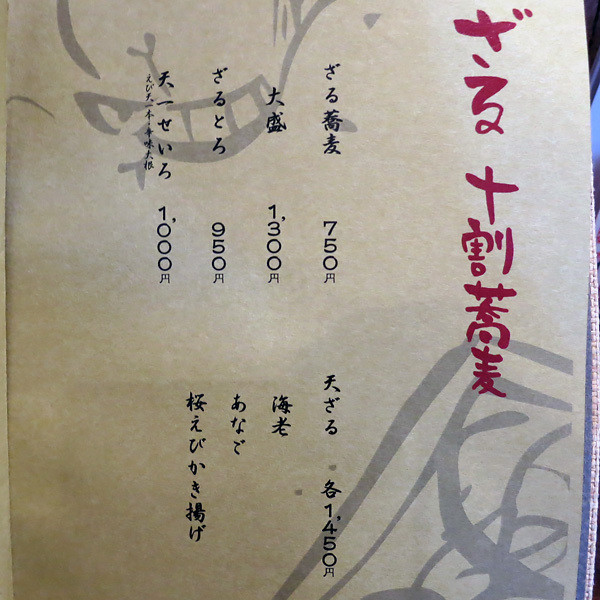 ざる 十割蕎麦
ざる蕎麦 750円
大盛 1,300円
ざるとろ 950円
天一せいろ 1,000円
えび天一本・辛味大根
天ざる 各1,450円
海老
あなご
桜えびかき揚げ